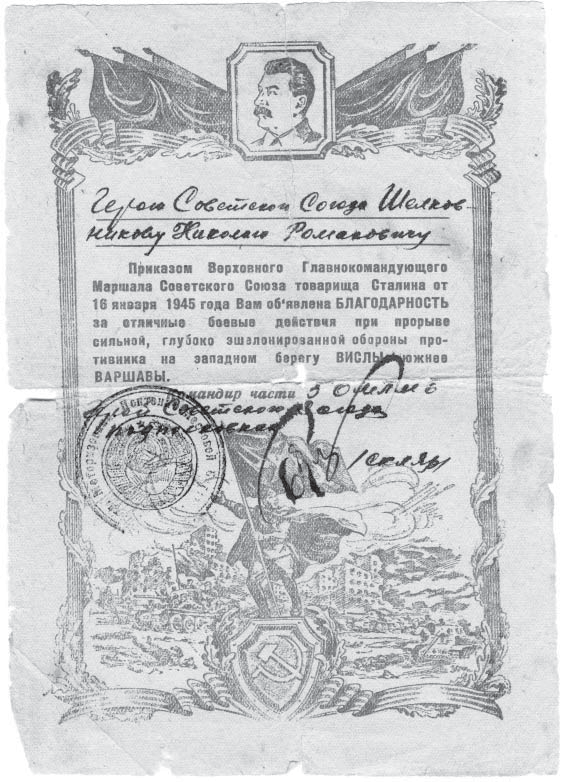 Герою Советского Союза Шелков-
никову Николаю Романовичу
Приказом Верховного Главнокомандующего
Маршала Советского Союза товарища Сталина от
16 января 1945 года Вам об‘явлена БЛАГОДАРНОСТЬ
за отличные боевые действия при прорыве
сильной, глубоко эшелонированной обороны про-
тивника на западном берегу ВИСЛЫ южнее
ВАРШАВЫ.
Командир части
Герой Советского Союза
/Скляр/